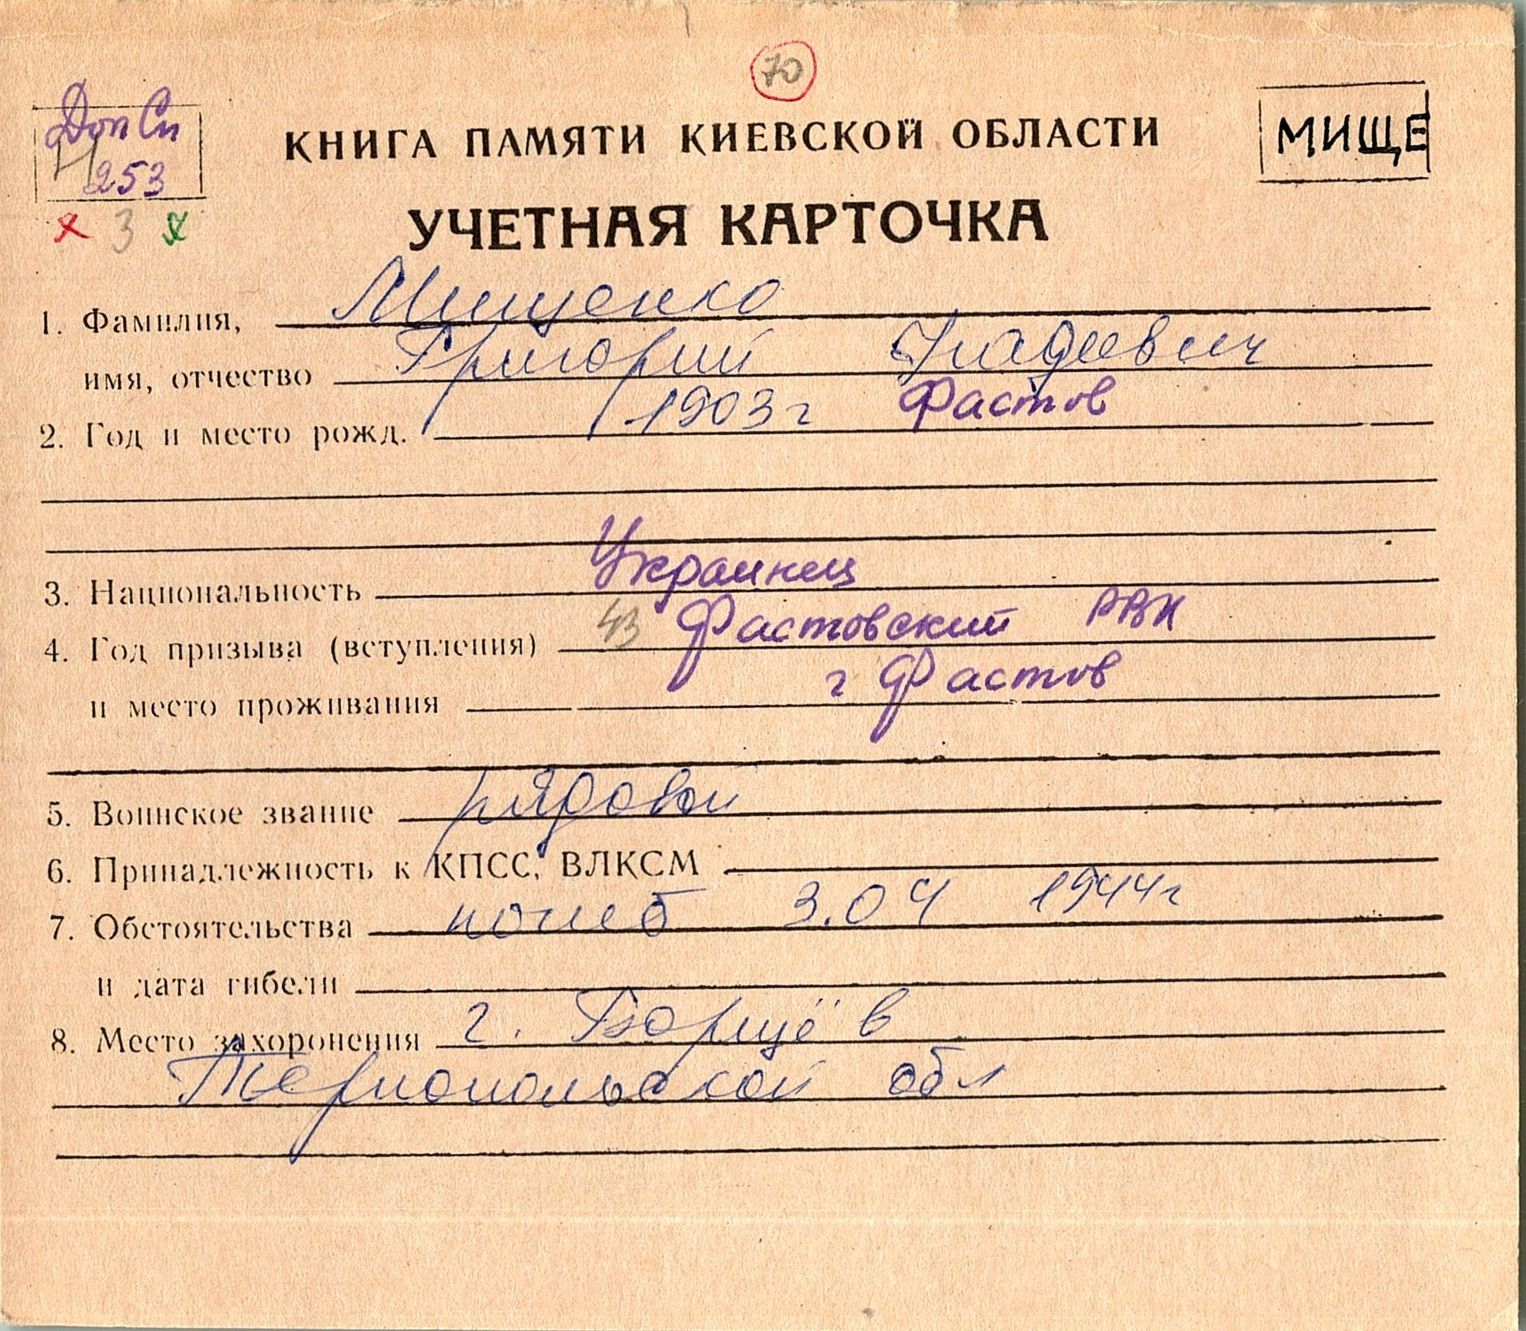 70
Доп Сп
253
КНИГА ПАМЯТИ КИЕВСКОЙ ОБЛАСТИ
МИЩЕ
3
УЧЕТНАЯ КАРТОЧКА
1. Фамилия, Мищенко
имя, отчество Григорий
2. Год и место рожд. 1903 г Фастов
3. Национальность Украинец
4. Год призыва (вступления) 43 Фастовский РВК
и место проживания г Фастов
5. Воинское звание рядовой
6. Принадлежность к КПСС, ВЛКСМ
7. Обстоятельства погиб 3.04 1944г
и дата гибели
8. Место захоронения г. Борщёв
Тернопольской обл